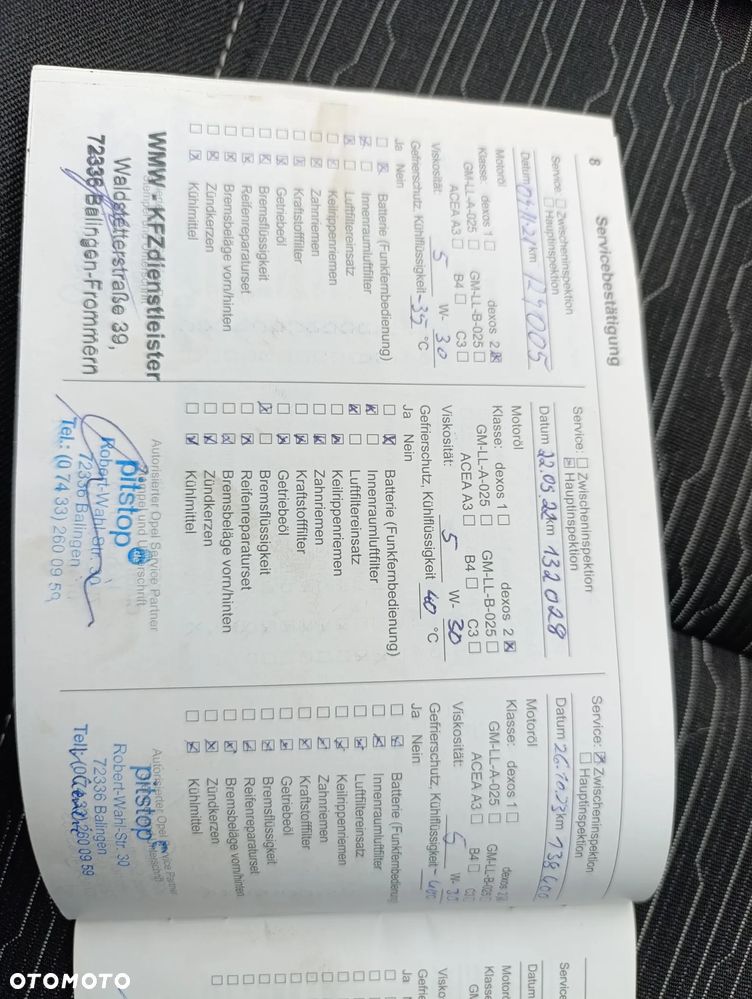 8 Servicebestätigung
Service: Zwischeninspektion
Hauptinspektion
Datum 04.11.21 km 124005
Motoröl
Klasse: dexos 1 dexos 2
GM-LL-A-025 GM-LL-B-025
ACEA A3 B4 C3
Viskosität: 5 W- 30
Gefrierschutz, Kühlflüssigkeit -35 °C
Ja Nein
Batterie (Funkfernbedienung)
Innenraumluftfilter
Luftfiltereinsatz
Keilrippenriemen
Zahnriemen
Kraftstofffilter
Getriebeöl
Bremsflüssigkeit
Reifenreparaturset
Bremsbeläge vorn/hinten
Zündkerzen
Kühlmittel
WMW - KFZdienstleister
Waldstetterstraße 39,
72336 Balingen-Frommern
Service: Zwischeninspektion
Hauptinspektion
Datum 22.05.22 km 132028
Motoröl
Klasse: dexos 1 dexos 2
GM-LL-A-025 GM-LL-B-025
ACEA A3 B4 C3
Viskosität: 5 W- 30
Gefrierschutz, Kühlflüssigkeit 40 °C
Ja Nein
Batterie (Funkfernbedienung)
Innenraumluftfilter
Luftfiltereinsatz
Keilrippenriemen
Zahnriemen
Kraftstofffilter
Getriebeöl
Bremsflüssigkeit
Reifenreparaturset
Bremsbeläge vorn/hinten
Zündkerzen
Kühlmittel
Autorisierter Opel Service Partner
Stempel und Unterschrift
pitstop
Robert-Wahl-Str. 30
72336 Balingen
Tel.: (0 74 33) 260 09 59
Service: Zwischeninspektion
Hauptinspektion
Datum 26.10.23 km 138600
Motoröl
Klasse: dexos 1 dexos 2
GM-LL-A-025 GM-LL-B-025
ACEA A3 B4
Viskosität: 5 W- 30
Gefrierschutz, Kühlflüssigkeit
Ja Nein
Batterie (Funkfernbedienung
Innenraumluftfilter
Luftfiltereinsatz
Keilrippenriemen
Zahnriemen
Kraftstofffilter
Getriebeöl
Bremsflüssigkeit
Reifenreparaturset
Bremsbeläge vorn/hinten
Zündkerzen
Kühlmittel
Autorisierter Opel Service Partner
pitstop
Robert-Wahl-Str. 30
72336 Balingen
260 09 59
Service
Datum
Motoröl
Klasse
GM
Visko
Gefrie
Ja
OTOMOTO